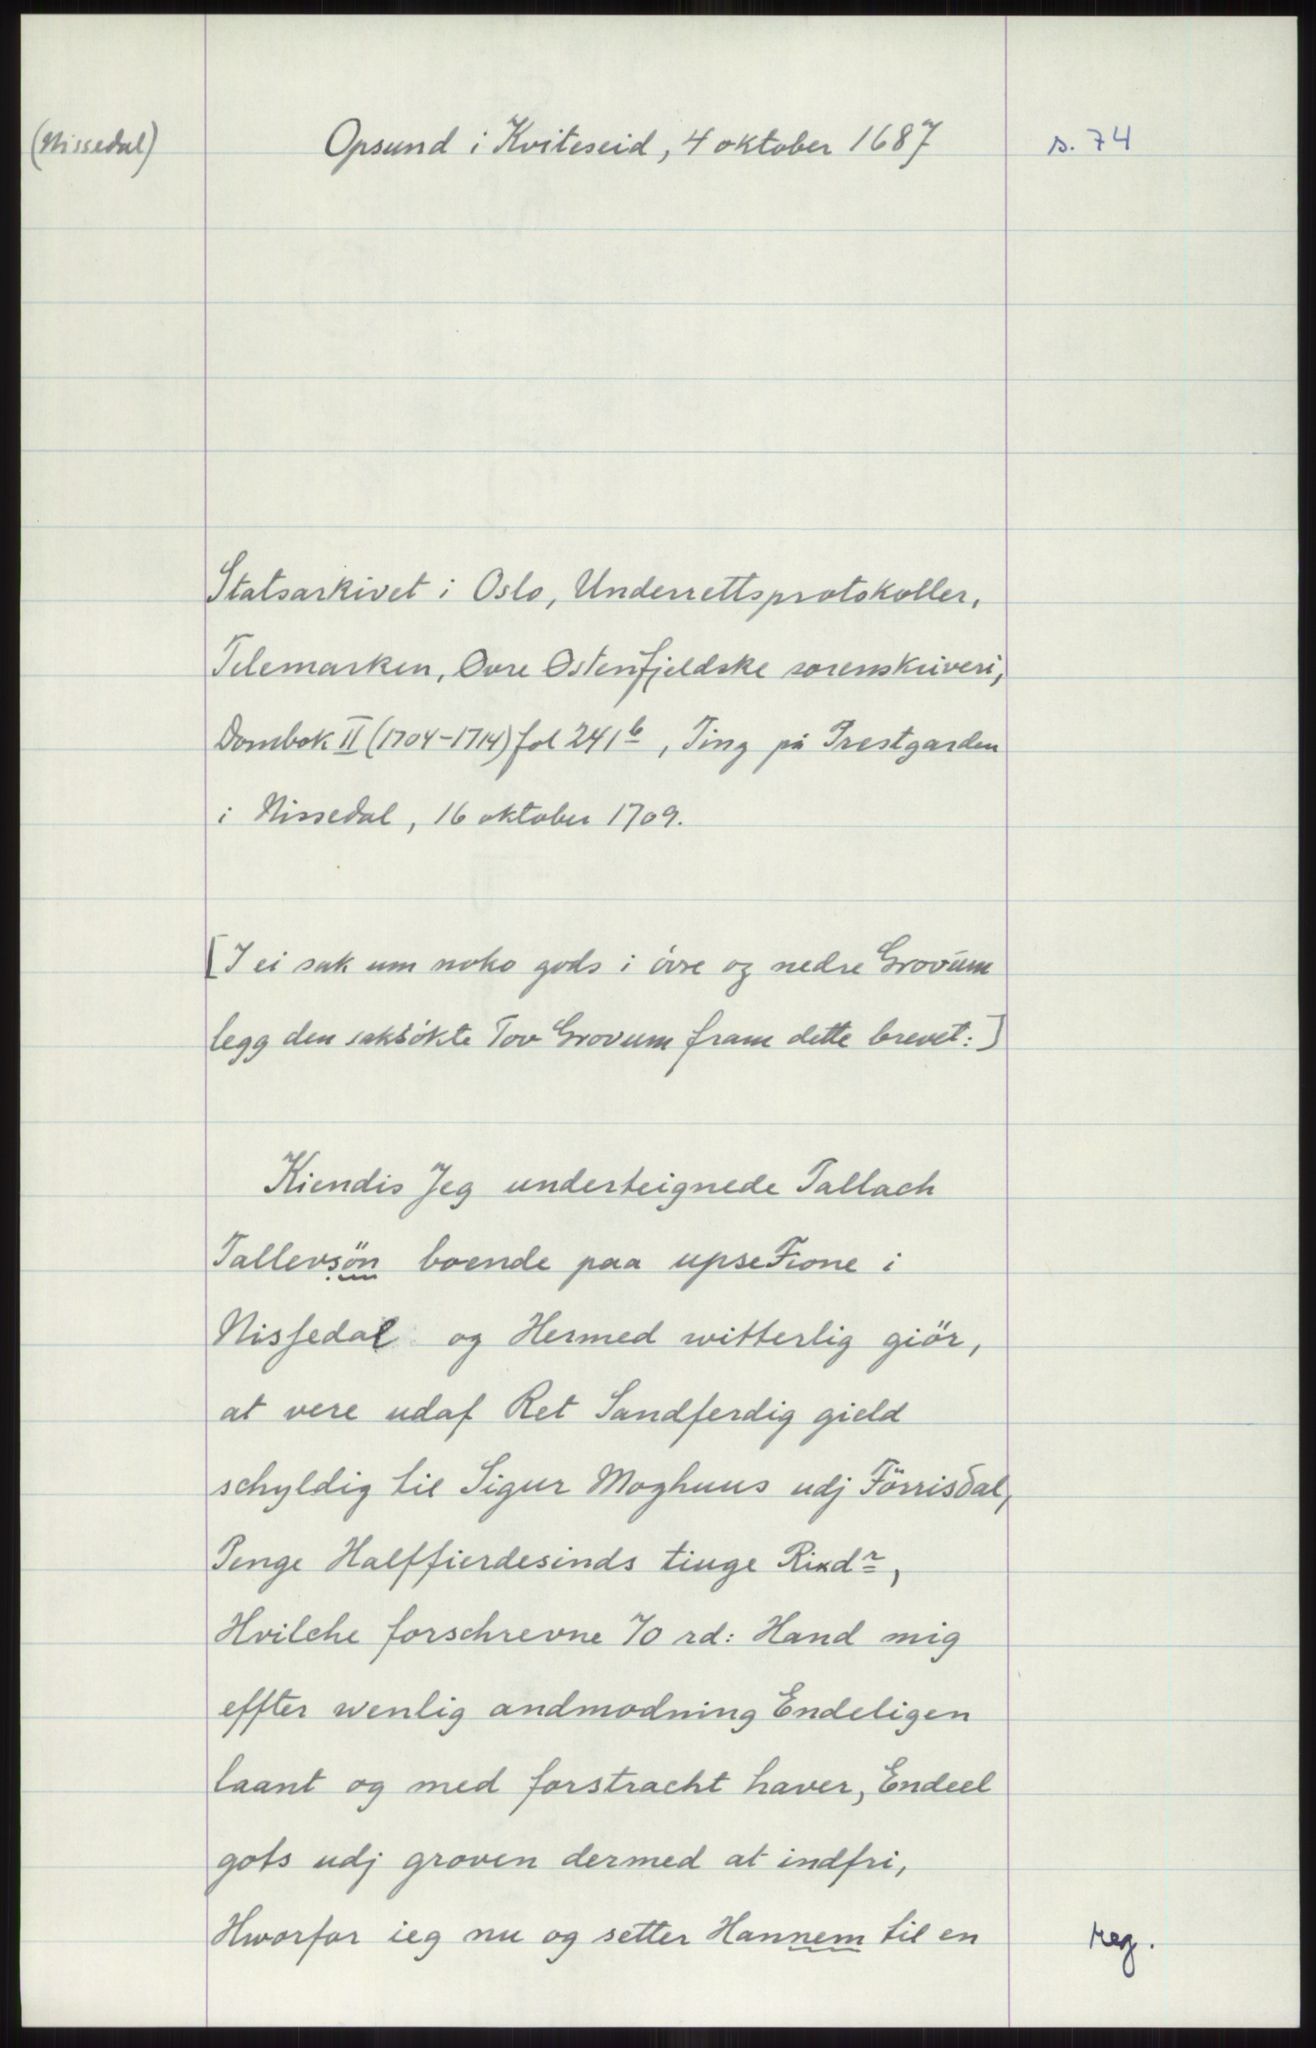 (Nissedal) Opsund i Kviteseid, 4 oktober 1687 s. 74
Statsarkivet i Oslo, Underrettsprotokoller,
Telemarken, Øvre Østenfjeldske sorenskriveri,
Dombok II (1704-1714) fol 241b, Ting på Prestgarden
i Nissedal, 16 oktober 1709.
[I ei sak um noko gods i övre og nedre Grovum
legg den saksökte Tov Grovum fram dette brevet:]
Kiendis Jeg underteignede Tallach
Tallevsön boende paa upse Fione i
Nisſedal og Hermed witterlig giör,
at vere udaf Ret Sandferdig gield
schyldig til Sigur Moghuus udj Förrisdal,
Penge Halffierdesinds tiuge Rixdr,
Hvilche forschrevne 70 rd: Hand mig
effter wenlig andmodning Endeligen
laant og med forstracht haver, Endeel
gots udj groven dermed at indfri,
Hworfor ieg nu og setter Hannem til en
reg.